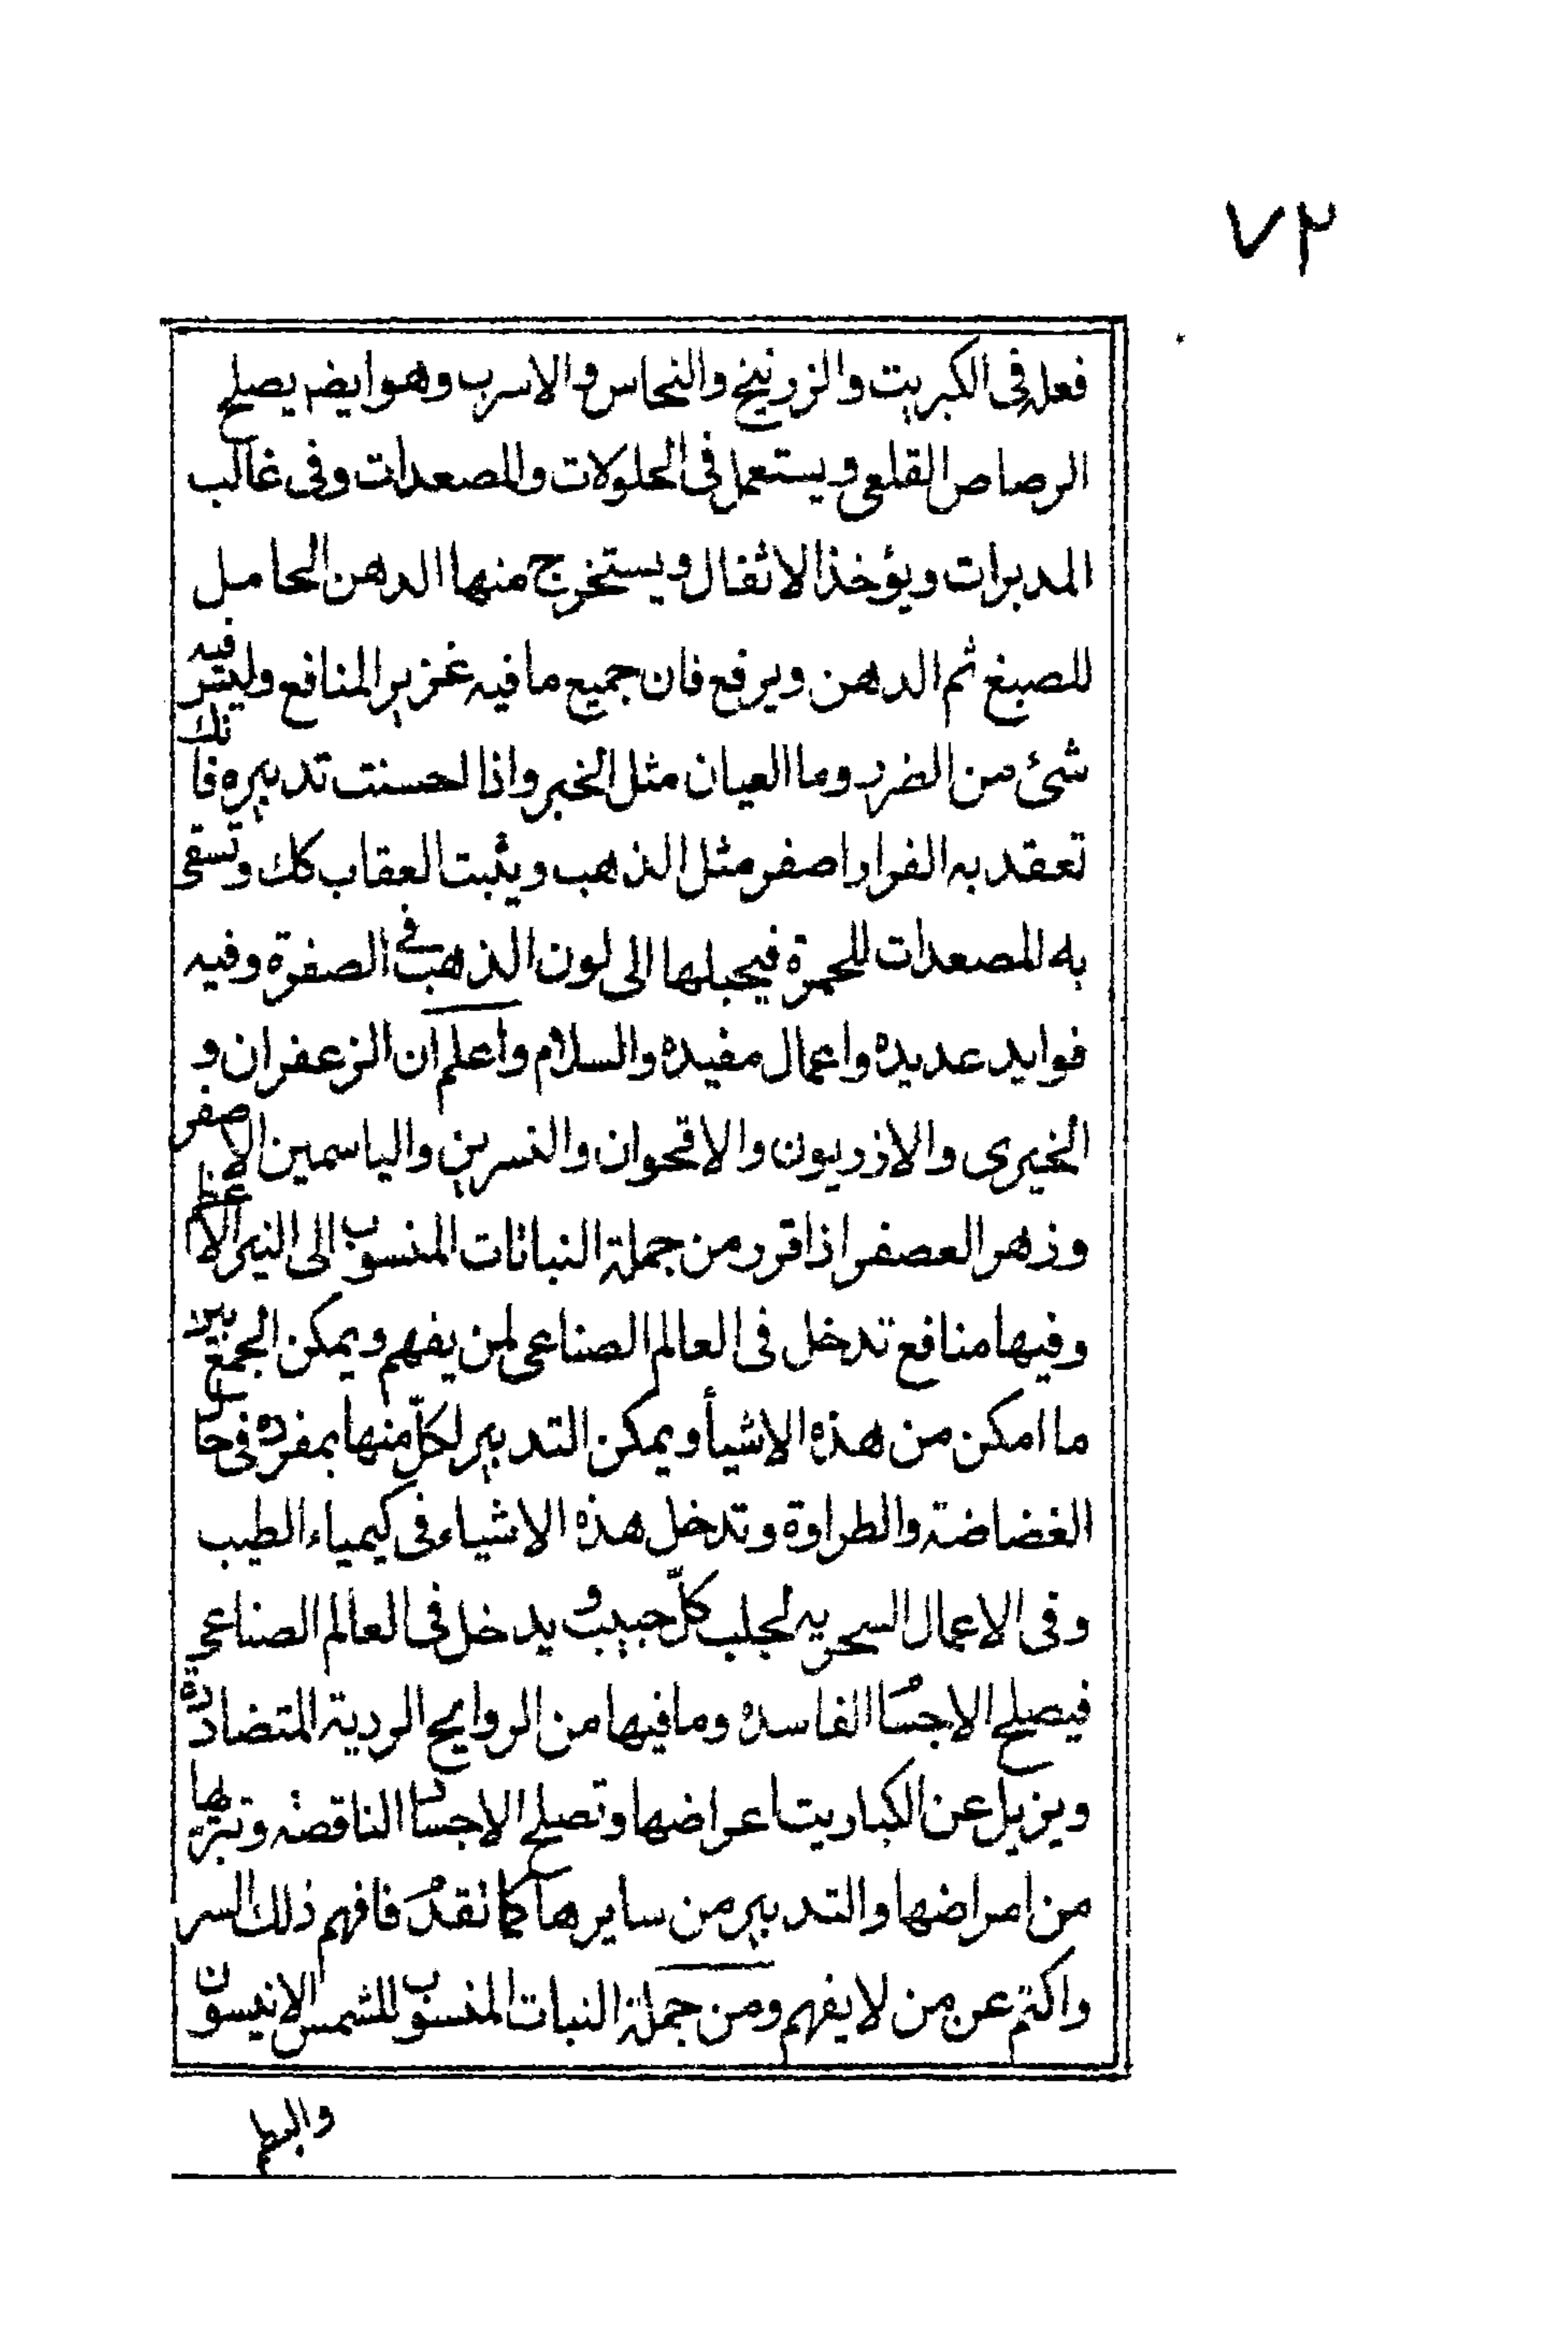 ٧٢
فعله فى الكبريت والزرنيخ والنحاس والاسرب وهو ايضه يصلح
الرصاص القلعى ويستعمل فى الحلولات والمصعدات وفى غالب
المدبرات ويؤخذ الاثفال ويستخرج منها الدهن الحامل
للصبغ ثم الدهن ويرفع فان جميع ما فيه غزير المنافع وليس فيه
شئ من الضرر وما العيان مثل الخبر واذا احسنت تدبيره فانك
تعقد به الفرار اصفر مثل الذهب ويثبت العقاب كك وتسقى
به المصعدات للحمرة فيحيلها الى لون الذهب فى الصفرة وفيه
فوايد عديده واعمال مفيده والسلام واعلم ان الزعفران و
الخيرى والاذريون والاقحوان والنسرين والياسمين الاصفر
وزهر العصفر اذا قرر من جملة النباتات المنسوب الى النير الاعظم
وفيها منافع تدخل فى العالم الصناعى لمن يفهم ويمكن الجمع بين
ما امكن من هذه الاشيأ ويمكن التدبير لكلّ منها بمفرده فى حال
الغضاضة والطراوة وتدخل هذه الاشياء فى كيمياء الطيب
وفى الاعمال السحريه لجلب كلّ حبيب ويدخل فى العالم الصناعى
فيصلح الاجسام الفاسده وما فيها من الروايح الردية المتضادة
ويزيل عن الكباريت اعراضها وتصلح الاجسام الناقصه وتبرئها
من امراضها والتدبير من سايرها كما تقدم فافهم ذلك السر
واكتم عن من لا يفهم ومن جملة النبات المنسوب للشمس الانيسون